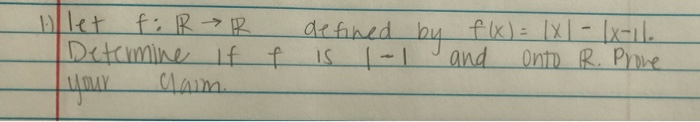 1.) let f: ℝ → ℝ defined by f(x) = |x| - |x-1|.
Determine if f is 1-1 and onto ℝ. Prove
your claim.